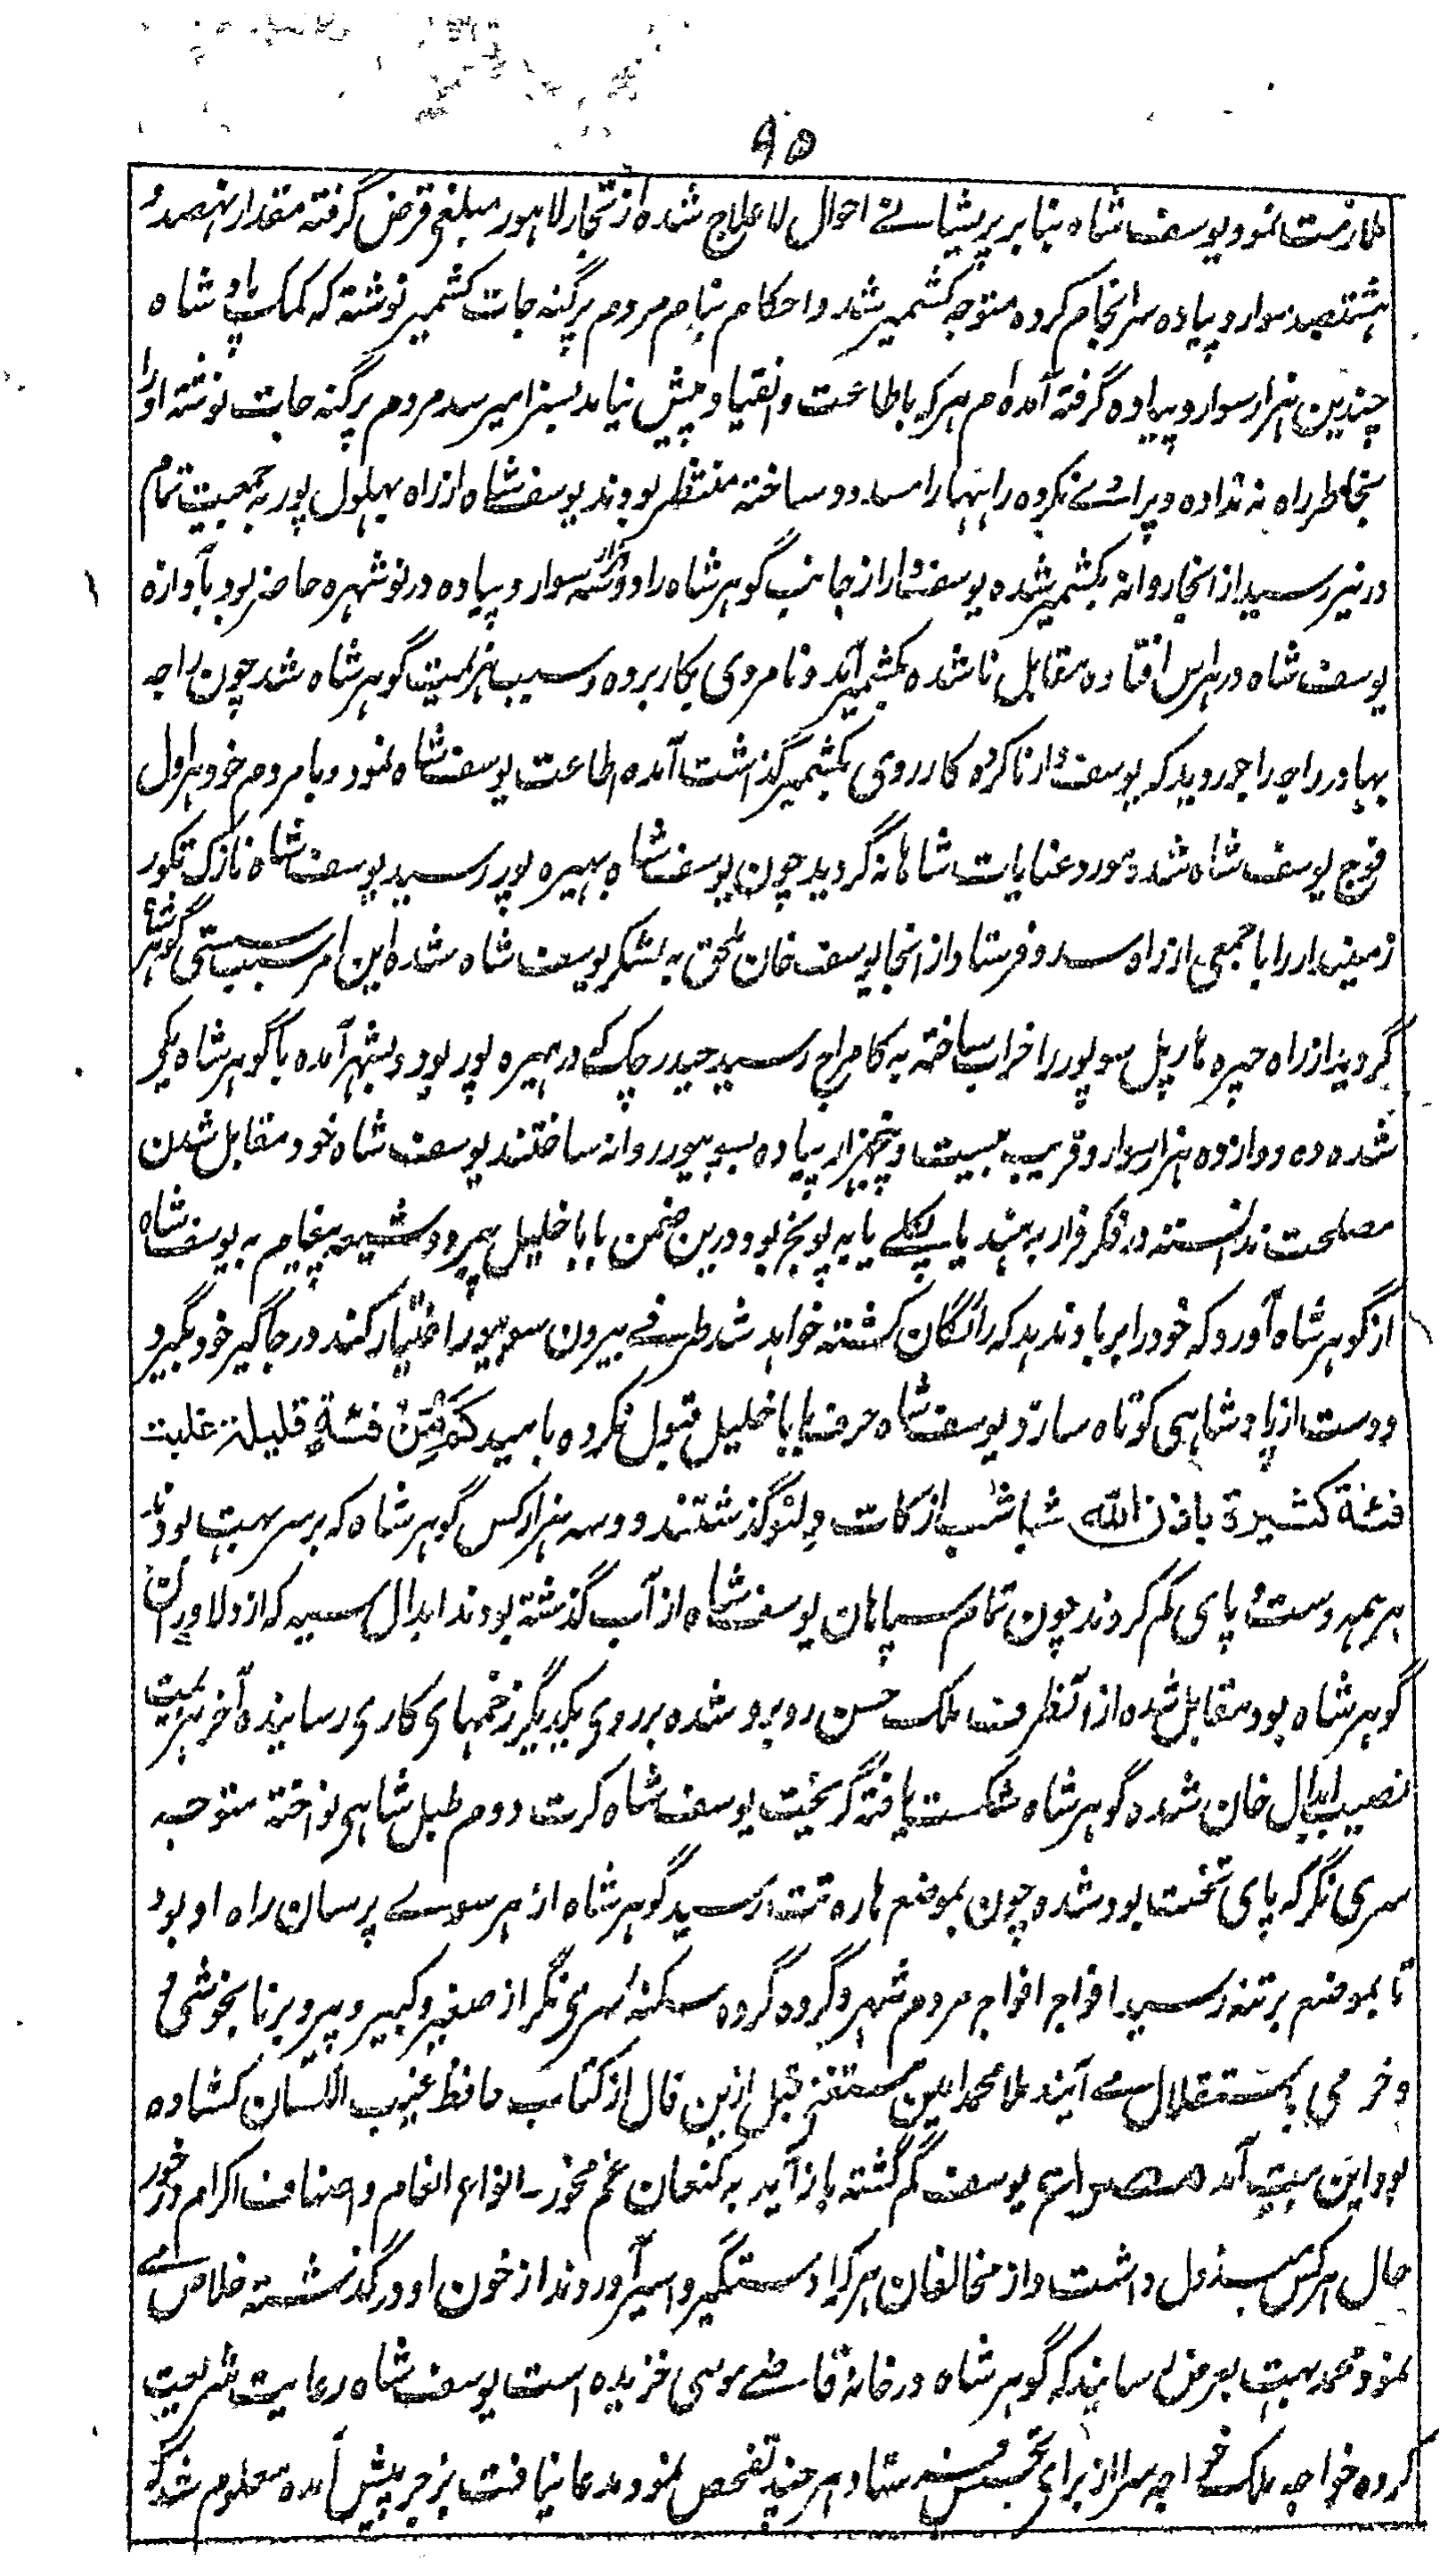 ٩٥
ملازمت نمود یوسف شاه بنا بر پریشانے احوال لاعلاج شده از تجار لاہور مبلغی قرض گرفته مقدار ہفصد و
ہشتصد سوار و پیاده سرانجام کرده متوجه کشمیر شد و احکام بنام مردم پرگنه جات کشمیر نوشته که کمک پادشاه
چندین ہزار سوار و پیاده گرفته آمده ام ہر که باطاعت و انقیاد پیش نیاید بسزا میرسد مردم پرگنه جات نوشته او را
بخاطر راه نه نداده و پرائے نکرده راہہا را مسدود ساخته منتظر بودند یوسف شاه از راه بہلول پور به جمعیت تمام
در نیر رسید از انجا روانه بکشمیر شده یوسف ڈار از جانب گوہر شاه با دو سه ہزار سوار و پیاده در نوشہره حاضر بود بآوازه
یوسف شاه در ہراس افتاده مقابل ناشده بکشمیر آمد و نامردی بکار برده و سبب ہزیمت گوہر شاه شد چون راجه
بہادر راجه راجور دید که یوسف ڈار ناکرده کار روی بکشمیر گذاشت آمده اطاعت یوسف شاه نمود و با مردم خود ہراول
فوج یوسف شاه شد و مورد عنایات شاہانه گردید چون یوسف شاه بہیره پور رسید یوسف شاه نازک تکور
زمیندار را با جمعی از راه سدو فرستاد از انجا یوسف خان ملحق به لشکر یوسف شاه شده این امر سبب سستی گوہر شاه
گردید از راه چیره ہار پل سوپور را خراب ساخته به کامراج رسید حیدر چک که در ہیره پور بود بشہر آمده با گوہر شاه یکی
شده ده دوازده ہزار سوار و قریب بیست و پنجہزار پیاده بسوپور روانه ساختند یوسف شاه خود مقابل شدن
مصلحت ندانسته در فکر فرار به ہند یا پکلے یا به پونچ بود درین ضمن بابا خلیل پیر و شیعه پیغام به یوسف شاه
از گوہر شاه آورد که خود را برباد ندہد که رائگان کشته خواہد شد طرفے بیرون سوپور اختیار کند در جاگیر خود بگیرد
و دست از پادشاہی کوتاه سازد یوسف شاه حرف بابا خلیل قبول نکرده بامید کم من فئة قلیلة غلبت
فئة کثیرة باذن الله شباشب از کات دلنو گذشتند دو سه ہزار کس گوہر شاه که بر سر بہت بودند
ہر ہمه دست و پای گم کردند چون تمام سپاہان یوسف شاه از آب گذشته بودند ابدال سیه که از دلاوران
گوہر شاه بود مقابل شده از آنطرف ملک حسن روبرو شده بر روی یکدیگر زخمہای کاری رسانیده آخر ہزیمت
نصیب ابدال خان شده گوہر شاه شکست یافته گریخت یوسف شاه کرت دوم طبل شاہی نواخته متوجه
سری نگر که پای تخت بود شده چون بموضع ہاره تت رسید گوہر شاه از ہر سوے پرسان راه او بود
تا بموضع برتنه رسید افواج افواج مردم شہر و گروه گروه سکنه سری نگر از صغیر و کبیر و پیر و برنا بخوشی
و خرمی باستقلال مے آیند ملا محمد امین مستغنی قبل ازین فال از کتاب حافظ غیب اللسان کشاده
بود این بیت آمد مصراع یوسف گم گشته باز آید به کنعان غم مخور ـ انواع انعام و اصناف اکرام در خور
حال ہر کس مبذول داشت و از مخالفان ہر کرا دستگیر و اسیر آوردند از خون او در گذشته خلاص مے
نمود محمد بہت بعرض رسانید که گوہر شاه در خانه قاضے موسی خزیده است یوسف شاه رعایت شریعت
کرده خواجه ملک خواجه سرا از برای تجسس فرستاد ہر چند تفحص نمود مدعا نیافت بزجر پیش آمده معلوم شد که